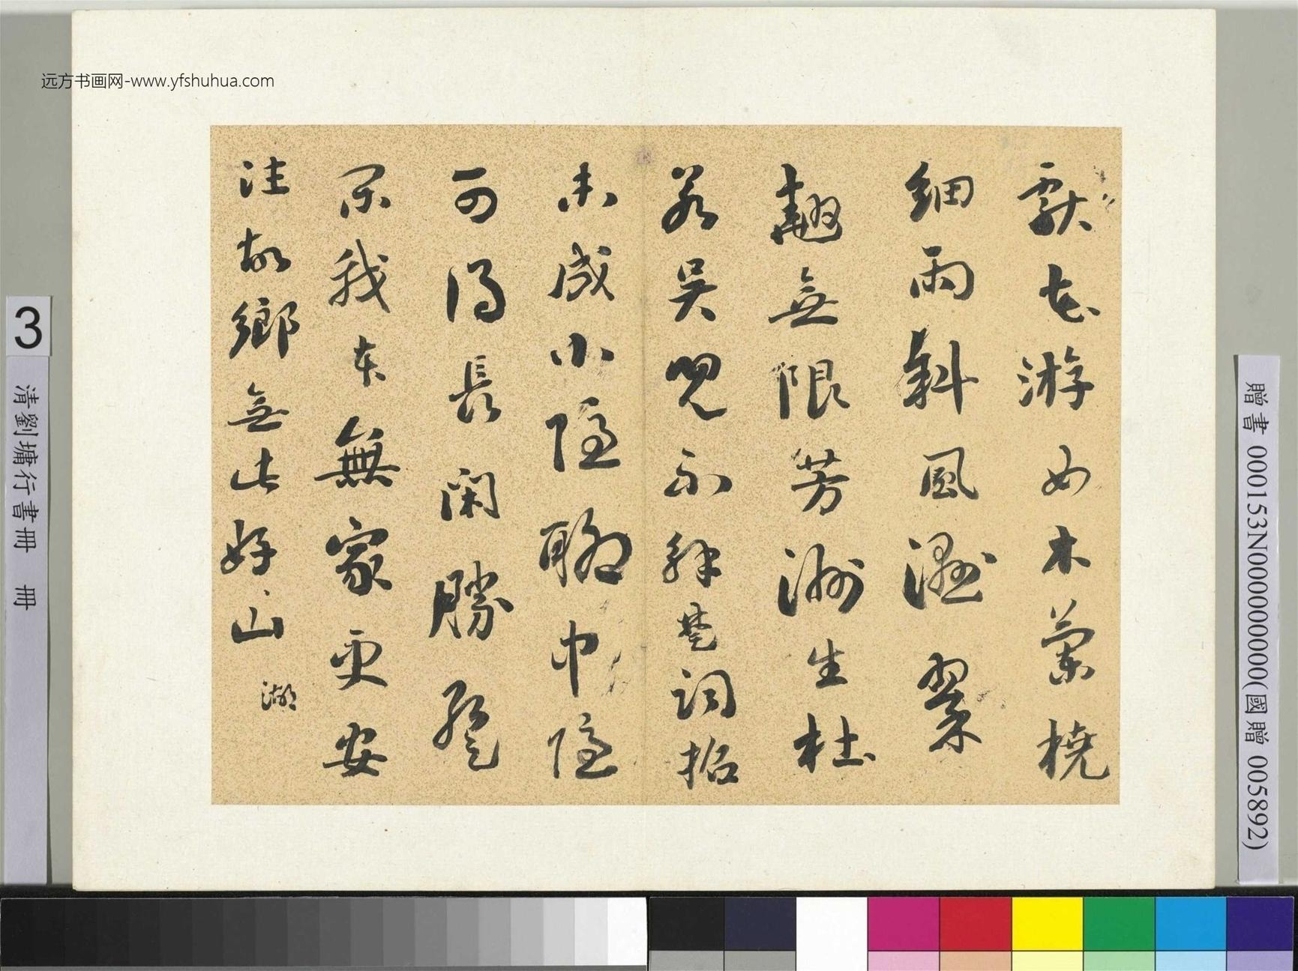 獻花游女木蘭橈
細雨斜風濕翠
翹無限芳洲生杜
若吳兒不解楚詞招
未成小隱聊中隱
可得長閑勝暫
閑我本無家更安
往故鄉無此好山
湖
远方书画网-www.yfshuhua.com
3
清劉墉行書冊 冊
贈書 000153N000000000(國贈 005892)